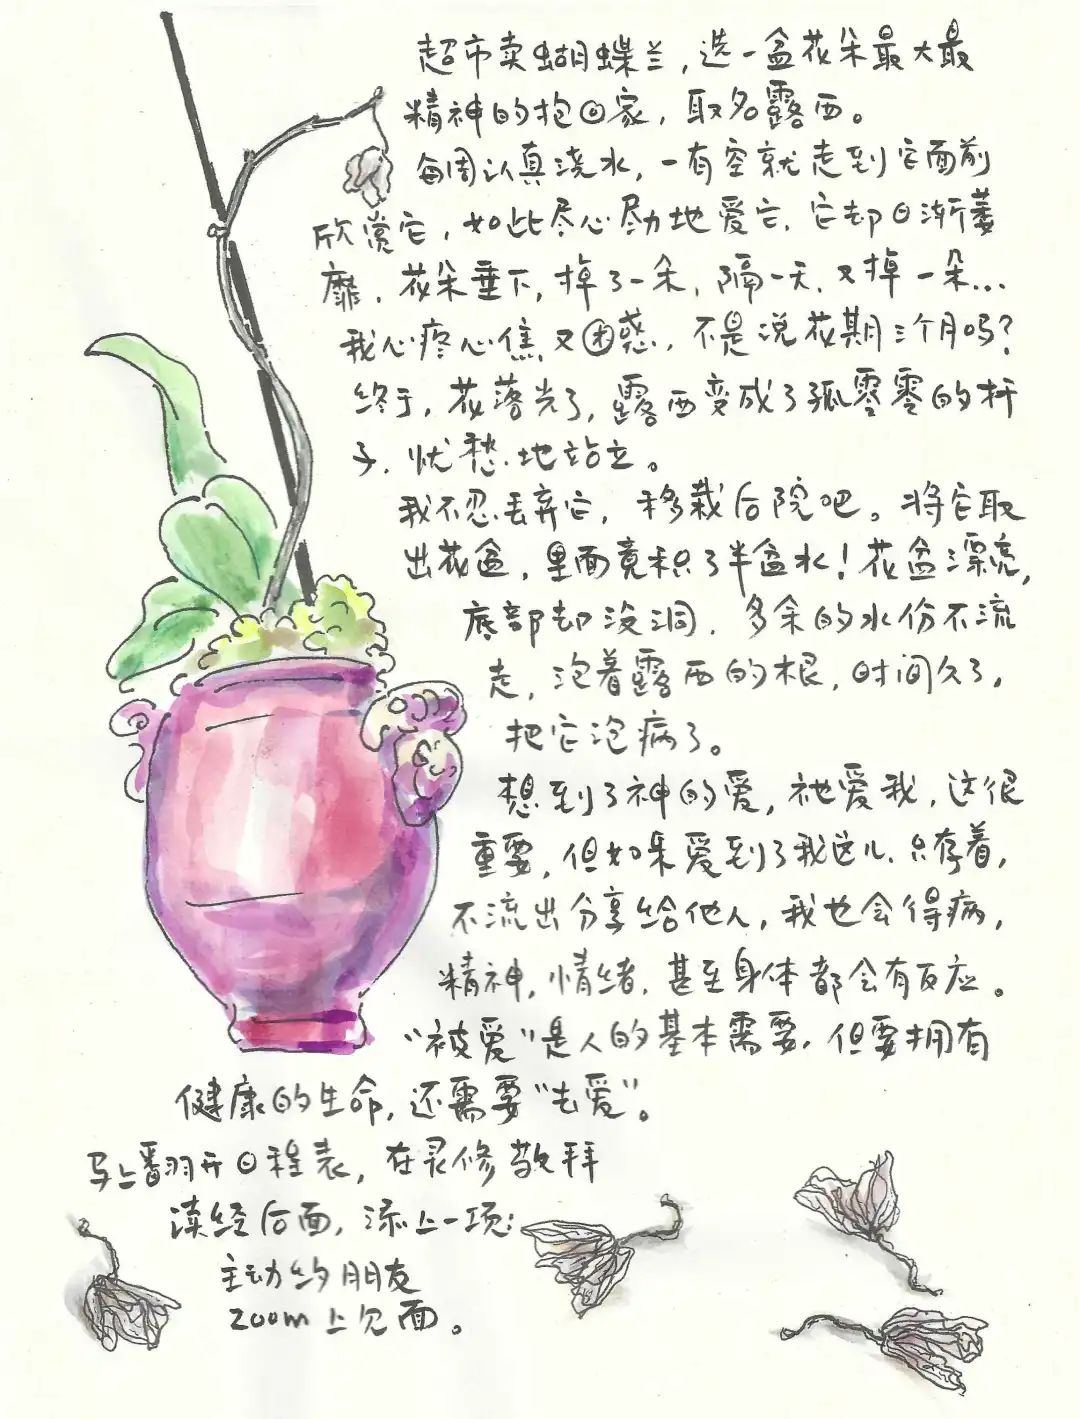 超市卖蝴蝶兰，选一盆花朵最大最
精神的抱回家，取名露西。
每周认真浇水，一有空就走到它面前
欣赏它，如此尽心尽力地爱它，它却日渐萎
靡，花朵垂下，掉了一朵，隔一天，又掉一朵…
我心疼心焦又困惑，不是说花期三个月吗？
终于，花落光了，露西变成了孤零零的杆
子，忧愁地站立。
我不忍丢弃它，移栽后院吧。将它取
出花盆，里面竟积了半盆水！花盆漂亮，
底部却没洞，多余的水份不流
走，泡着露西的根，时间久了，
把它泡病了。
想到了神的爱，祂爱我，这很
重要，但如果爱到了我这儿，只存着，
不流出分享给他人，我也会得病，
精神，情绪，甚至身体都会有反应。
“被爱”是人的基本需要，但要拥有
健康的生命，还需要“去爱”。
马上翻开日程表，在灵修敬拜
读经后面，添上一项：
主动约朋友
zoom上见面。